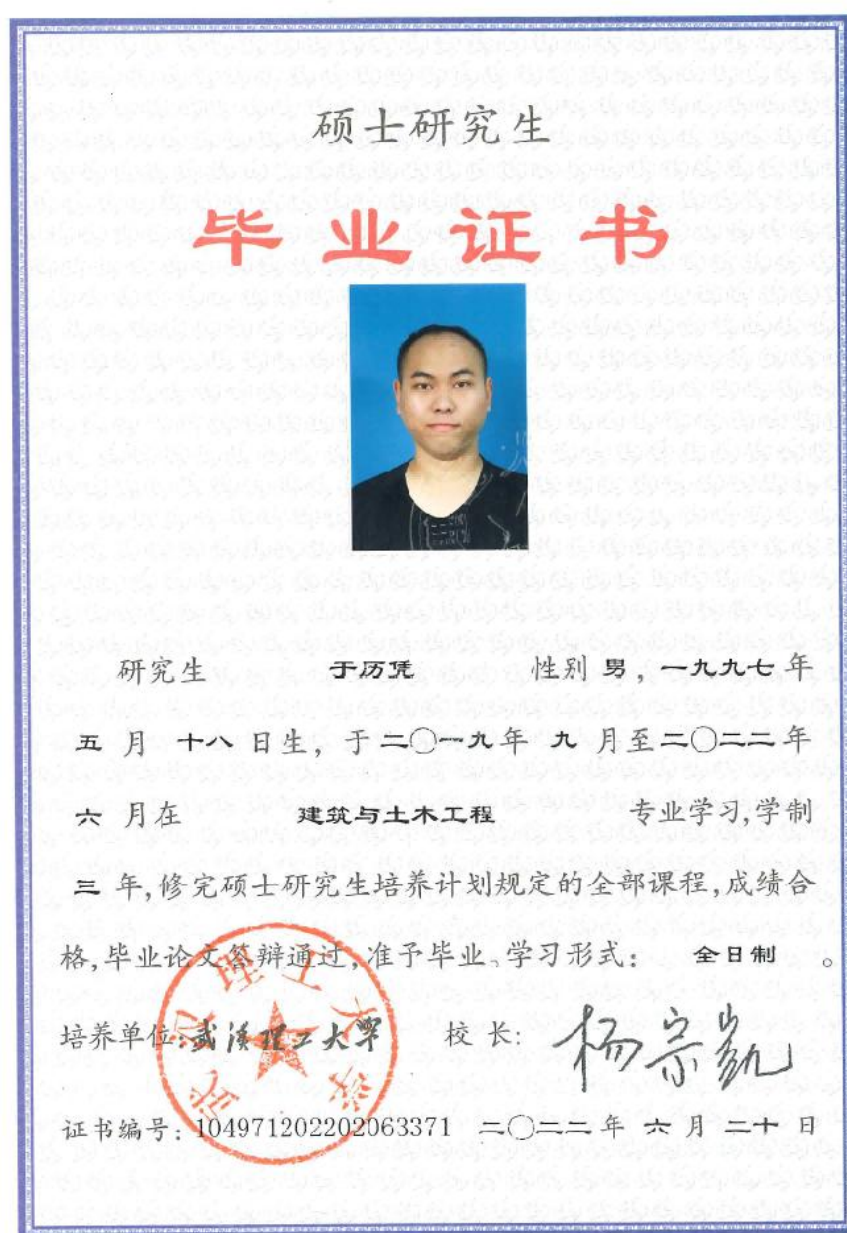 硕士研究生
毕业证书
研究生 于历凭 性别 男，一九九七 年
五 月 十一 日生，于 二〇一九 年 九 月至 二〇二二 年
六 月在 建筑与土木工程 专业学习，学制
三 年，修完硕士研究生培养计划规定的全部课程，成绩合
格，毕业论文答辩通过，准予毕业。学习形式： 全日制 。
培养单位：武汉理工大学 校 长： 杨宗凯
证书编号：104971202202063371 二〇二二 年 六 月 二十 日
武汉理工大学